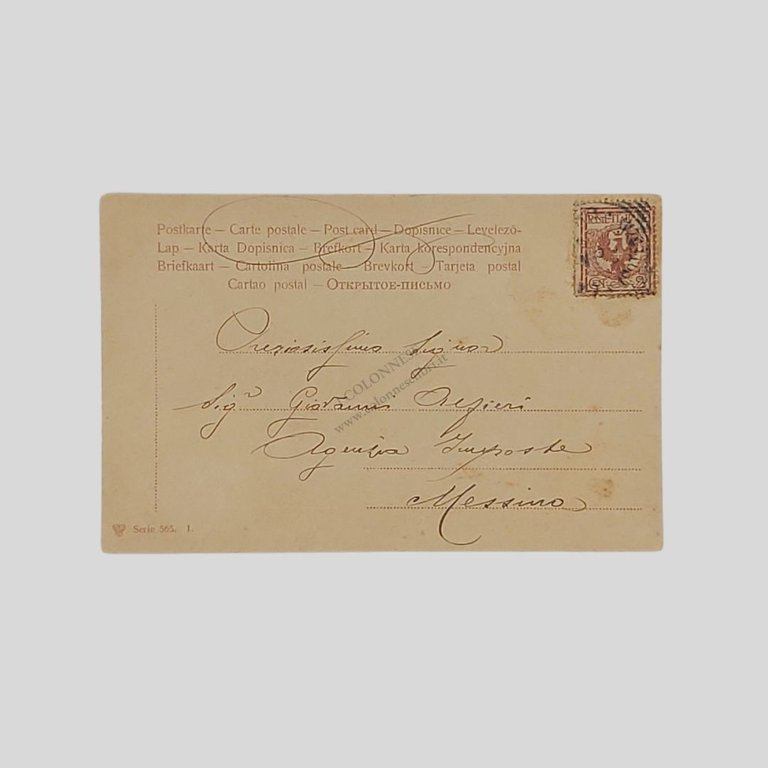 Postkarte — Carte postale — Post card — Dopisnice — Levelező-
Lap — Karta Dopisnica — Brefkort — Karta korespondencyjna
Briefkaart — Cartolina postale — Brevkort — Tarjeta postal
Cartao postal — Открытое-письмо
Pregiatissimo Signor
Sigr Giovanni Alfieri
Agenzia Imposte
Messina
COLONNESE
www.colonneselibri.it
Serie 565. 1.